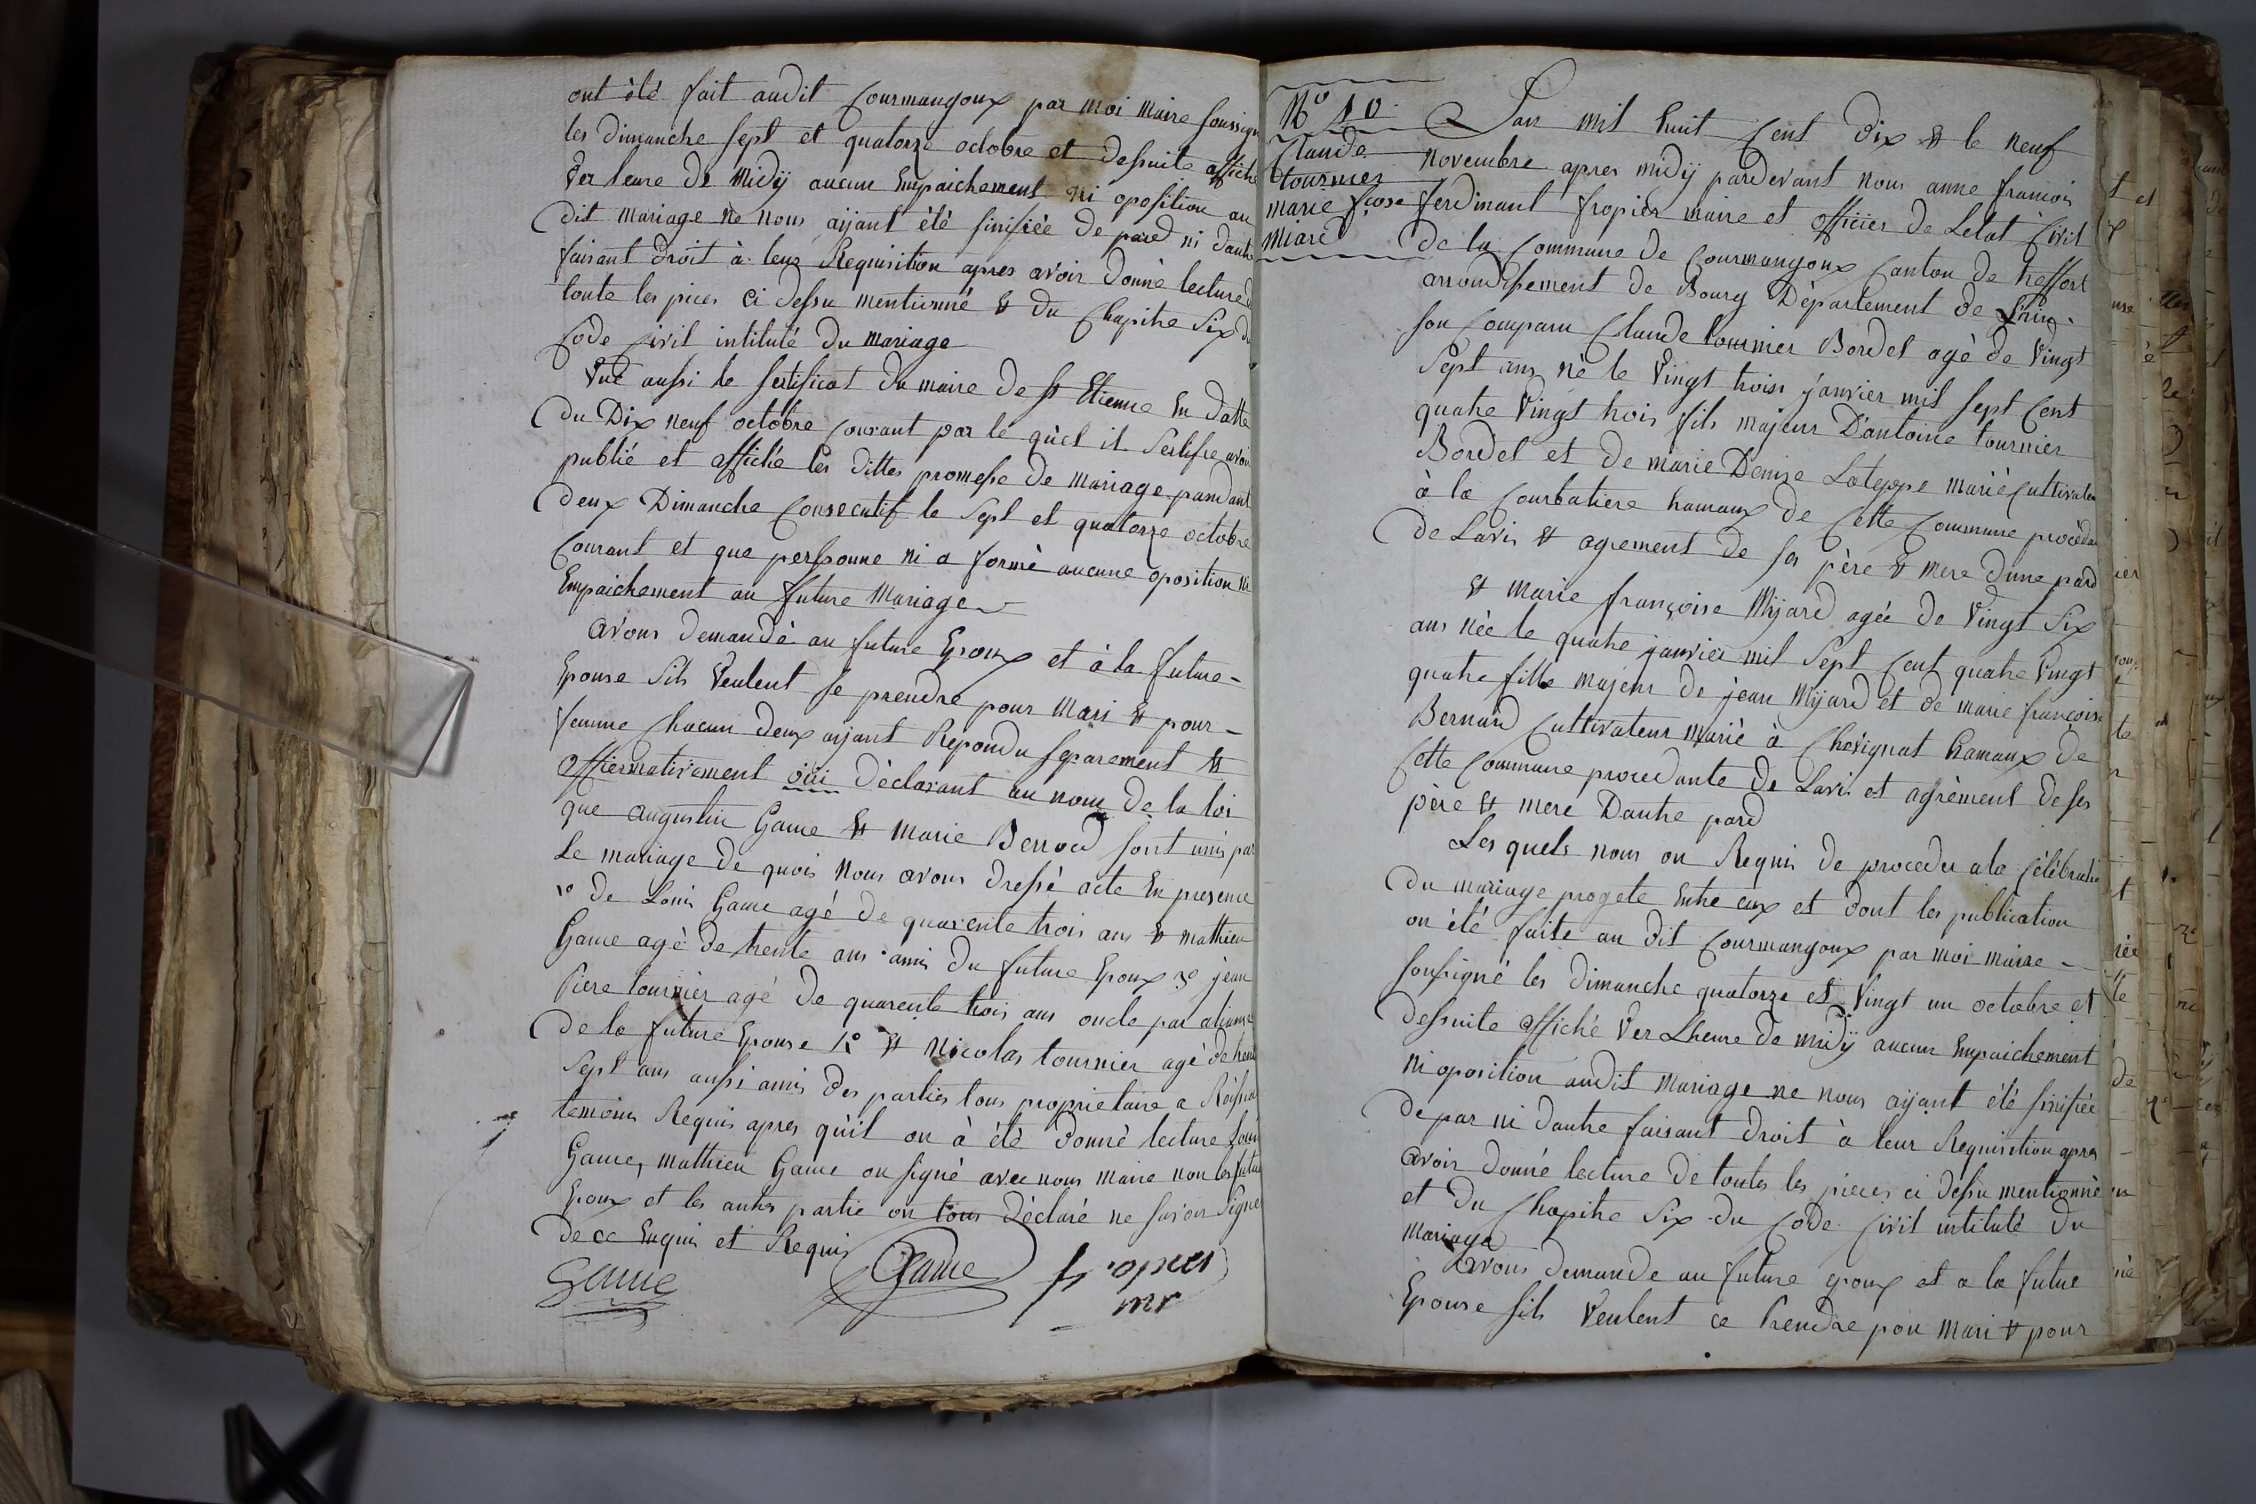 ont été fait audit Courmangoux par moi maire soussigné
les dimanche sept et quatorze octobre et dessuite affiché
ver leure de Midÿ aucun Empaichement ni oposition au
dit mariage ne nous aÿant été sinifiée de pard ni dautre
faisant droit à leur Requisition apres avoir donné lecture de
toute les pices ci dessu mentionné & du Chapitre Six du
Code Civil intitulé du mariage
Vue aussi le sertificat du maire de st Etienne En datte
du Dix neuf octobre Courant par le quèel il Sertifie avoir
publié et affichée les dittes promesse de mariage pandant
deux Dimanche Consecutif le Sept et quatorze octobre
Courant et que perssonne ni a formé aucune oposition ni
Empaichement au future Mariage
avons demandé au future Epoux et à la future
Epouse Sils Veulent se prendre pour Mari & pour
femme Chacun deux aÿant Repondu separement &
affiermativement oüi déclarant au nom de la loi
que augustin Game & Marie Berrod sont unis par
Le mariage de quoi Nous avons dressé acte En presence
1º de Louis Game agé de quarente trois ans & mathieu
Game agé de trente ans amis du future Epoux 3º jean
Piere tournier agé de quarente trois ans oncle par aliance
de la future Epouse 4º & Nicolas tournier agé de trente
Sept ans aussi amis des parties tous proprietaire a
temoins Requis apres qu'il on à été donné lecture Louis
Game, mathieu Game on signé avec nous maire non les futur
Epoux et les autres partie on tous déclaré ne savoir Signer
de ce Enquis et Requis
Game Game fropier
mr
Nº 10
Claude
tournier
marie fcose
Miard
Lan mil huit Cent dix & le neuf
novembre apres midÿ pardevant nous anne francois
ferdinant fropier maire et officier de Letat Civil
de la Commune de Courmangoux Canton de treffort
arrondissement de Bourg Département de Lain
son Comparu Claude tournier Bordel agé de Vingt
Sept ans né le Vingt trois janvier mil sept Cent
quatre Vingt trois fils majeur D'antoine tournier
Bordel et de marie Denise Lateppe marié Cultivateur
à la Courbatiere hamaux de Cette Commune procédant
de Lavis & agrement de ses père & mere dune pard
& marie françoise Mÿard agée de Vingt Six
ans née le quatre janvier mil Sept Cent quatre Vingt
quatre fille majeur de jean Mÿard et de marie françoise
Bernard Cultivateur marié à Chevignat hamaux de
Cette Commune procedante de Lavis et agrément de ses
père & mere Dautre pard
Les quels nous on Requis de proceder a la Célébration
du mariage progeté Entre eux et dont les publication
on été faite au dit Courmangoux par moi maire
sousigné les dimanche quatorze et Vingt un octobre et
dessuite affiché ver Lheure de midÿ aucun Empaichement
ni oposition audit mariage ne nous aÿant été sinifiée
de par ni dautre faisant droit à leur Requisition apres
avoir donné lecture de toutes les pieces ci dessu mentionné
et du Chapitre Six du Code Civil intitulé du
mariage
avons demandé au future epoux et a la future
Epouse Sils Veulent ce Prendre pou mari & pour